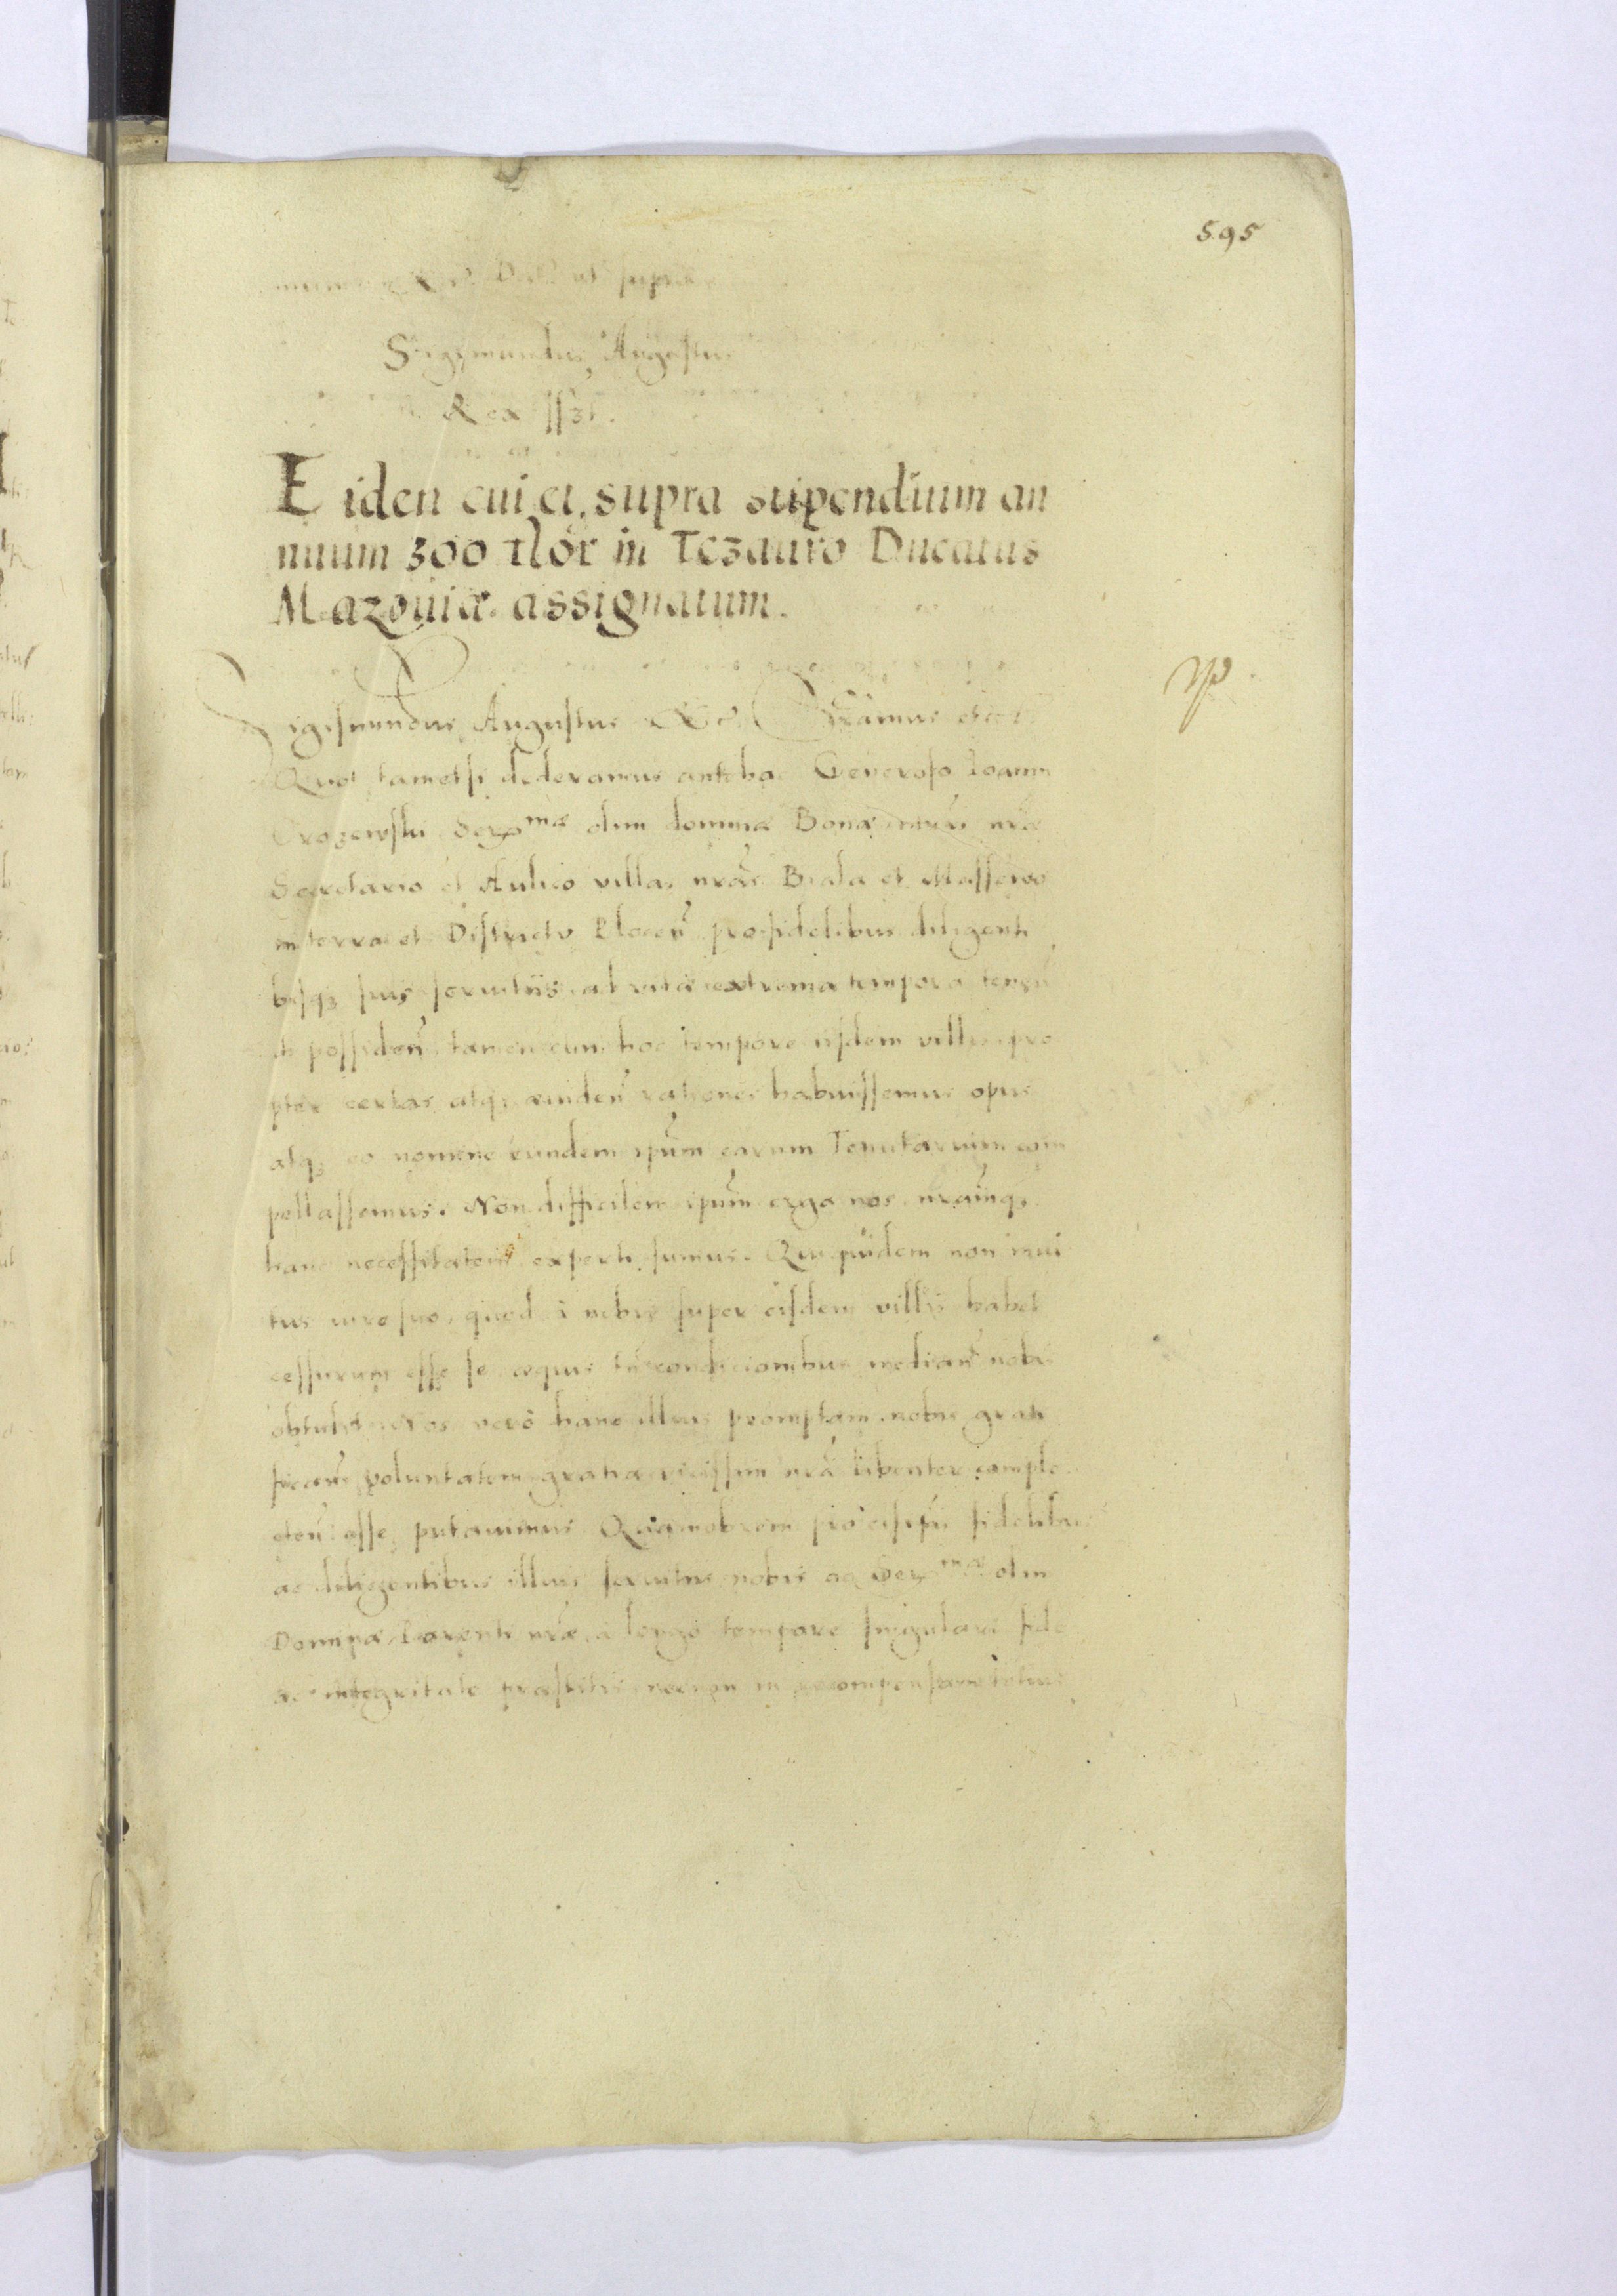 595
ut supra
Sigismundus Augustus
Rex sszt.
Eiden cui et supra stipendium an
nuum 300 flor in Tezauro Ducatus
Mazouiæ assignatum.
Sigismundus Augustus &c.
Quod tametsi dederamus anteha Generoso Ioanni
Ser^mæ olim dominæ Bonæ nræ
Secretario et Aulico villas nras Biala et Massewo
in terra et Districtu Plocen pro fidelibus diligenti
busq; suis seruitiis ad vitæ extrema tempora
possiden tamen cum hoc tempore iisdem villis pro
pter certas atq; euiden rationes habuissemus opus
atq; eo nomine eundem ipum earum Tenutarium com
pellassemus. Non difficilem ipum erga nos nramq;
hanc necessitatem experti sumus. Qui quidem non inui
tus iure suo, quod à nobis super eisdem villis habet
cessurum esse se æquis condicionibus median nobis
obtulit Nos verò hanc illius promptam nobis grati
fican voluntatem gratia vicissim nra libenter comple
cten esse putauimus Quamobrem pro eisdem fidelibus
ac diligentibus illius seruitiis nobis ac Ser^mæ olim
Dominæ Parenti nræ à longo tempore singulari fide
ac integritate præstitis necnon in recompensam